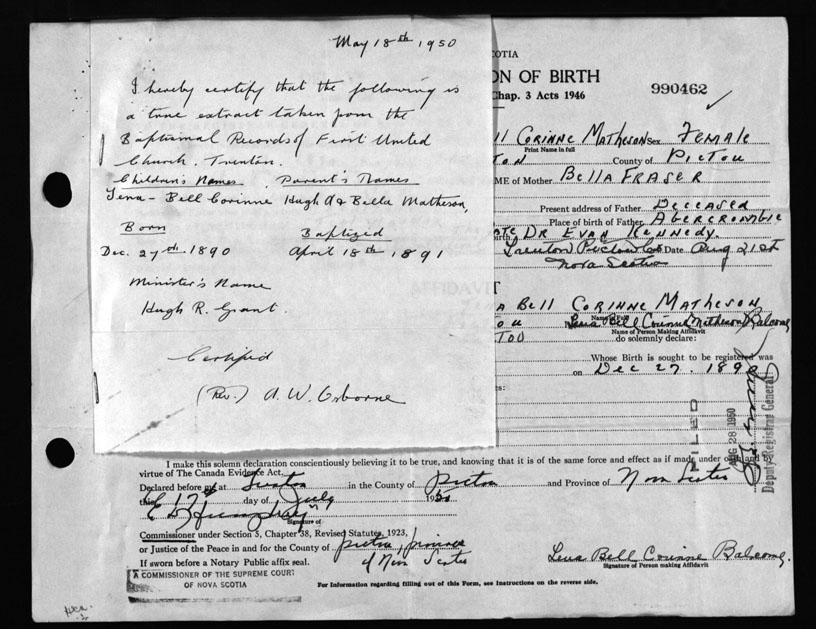 May 18th 1950
I hereby certify that the following is
a true extract taken from the
Baptismal Records of First United
Church, Trenton.
Children's Names Parent's Names
Lena - Bell Corinne Hugh A & Bella Matheson,
Born Baptized
Dec. 27th 1890 April 18th 1891
Minister's Name
Hugh R. Grant.
Certified
(Rev.) A. W. Osborne
COTIA
ON OF BIRTH
Chap. 3 Acts 1946
990462
ll Corinne Matheson Sex Female
Print Name in full
TON County of Pictou
ME of Mother Bella Fraser
Present address of Father Deceased
Place of birth of Father Abercrombie
ate Dr Evan Kennedy.
birth Trenton Pictou Co Date Aug 21st
Nova Scotia
AFFIDAVIT
a Bell Corinne Matheson
Name in Full
tou Lena Bell Corinne Matheson Balcom
Name of Person Making Affidavit
too do solemnly declare:
Whose Birth is sought to be registered was
on Dec 27. 1890
es:
FILED
AUG 28 1950
Deputy Registrar General
I make this solemn declaration conscientiously believing it to be true, and knowing that it is of the same force and effect as if made under oath and by
virtue of The Canada Evidence Act.
Declared before me at Trenton in the County of Pictou and Province of Nova Scotia
this 17 day of July 1950
Signature of
Commissioner under Section 5, Chapter 38, Revised Statutes, 1923,
or Justice of the Peace in and for the County of Pictou, province
If sworn before a Notary Public affix seal. of Nova Scotia
Lena Bell Corinne Balcom.
Signature of Person making Affidavit
A COMMISSIONER OF THE SUPREME COURT
OF NOVA SCOTIA
For Information regarding filling out of this Form, see Instructions on the reverse side.